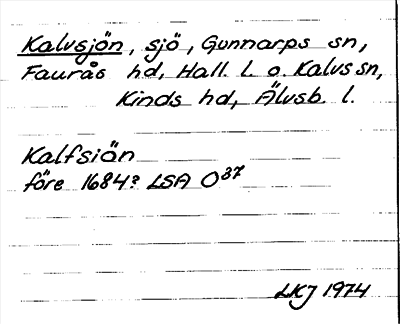 Kalvsjön, sjö, Gunnarps sn,
Faurås hd, Hall. l. o. Kalvs sn,
Kinds hd, Älvsb. l.
Kalfsiön
före 1684? LSA O37
LKJ 1974